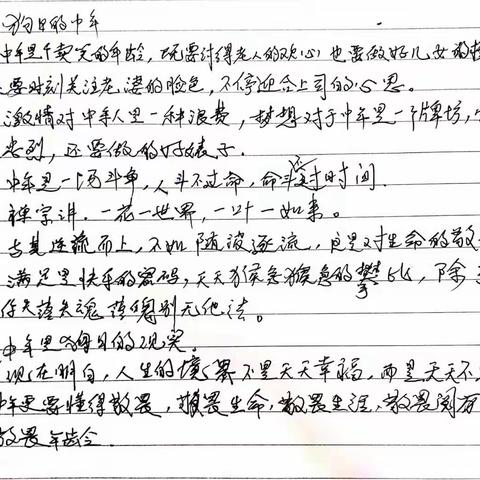 狗日的中年
中年是个卖笑的年龄，既要讨得老人的欢心也要做好儿女的榜
要时刻关注老婆的脸色，不停迎合上司的心思。
激情对中年人是一种浪费，梦想对于中年是一个牌坊，
贞烈，还要做的好婊子。
中年是一场斗争，人斗不过命，命斗不过时间。
禅宗讲，一花一世界，一叶一如来。
与其逆流而上，不如随波逐流，这是对生命的敬
满足是快乐的密码，天天猴急猴急的攀比，除
失落失魂落魄别无他法。
中年是狗日的现实。
现在明白，人生的境界不是天天幸福，而是天天不
中年更要懂得敬畏，敬畏生命，敬畏生涯，敬畏阅历
敬畏年龄。